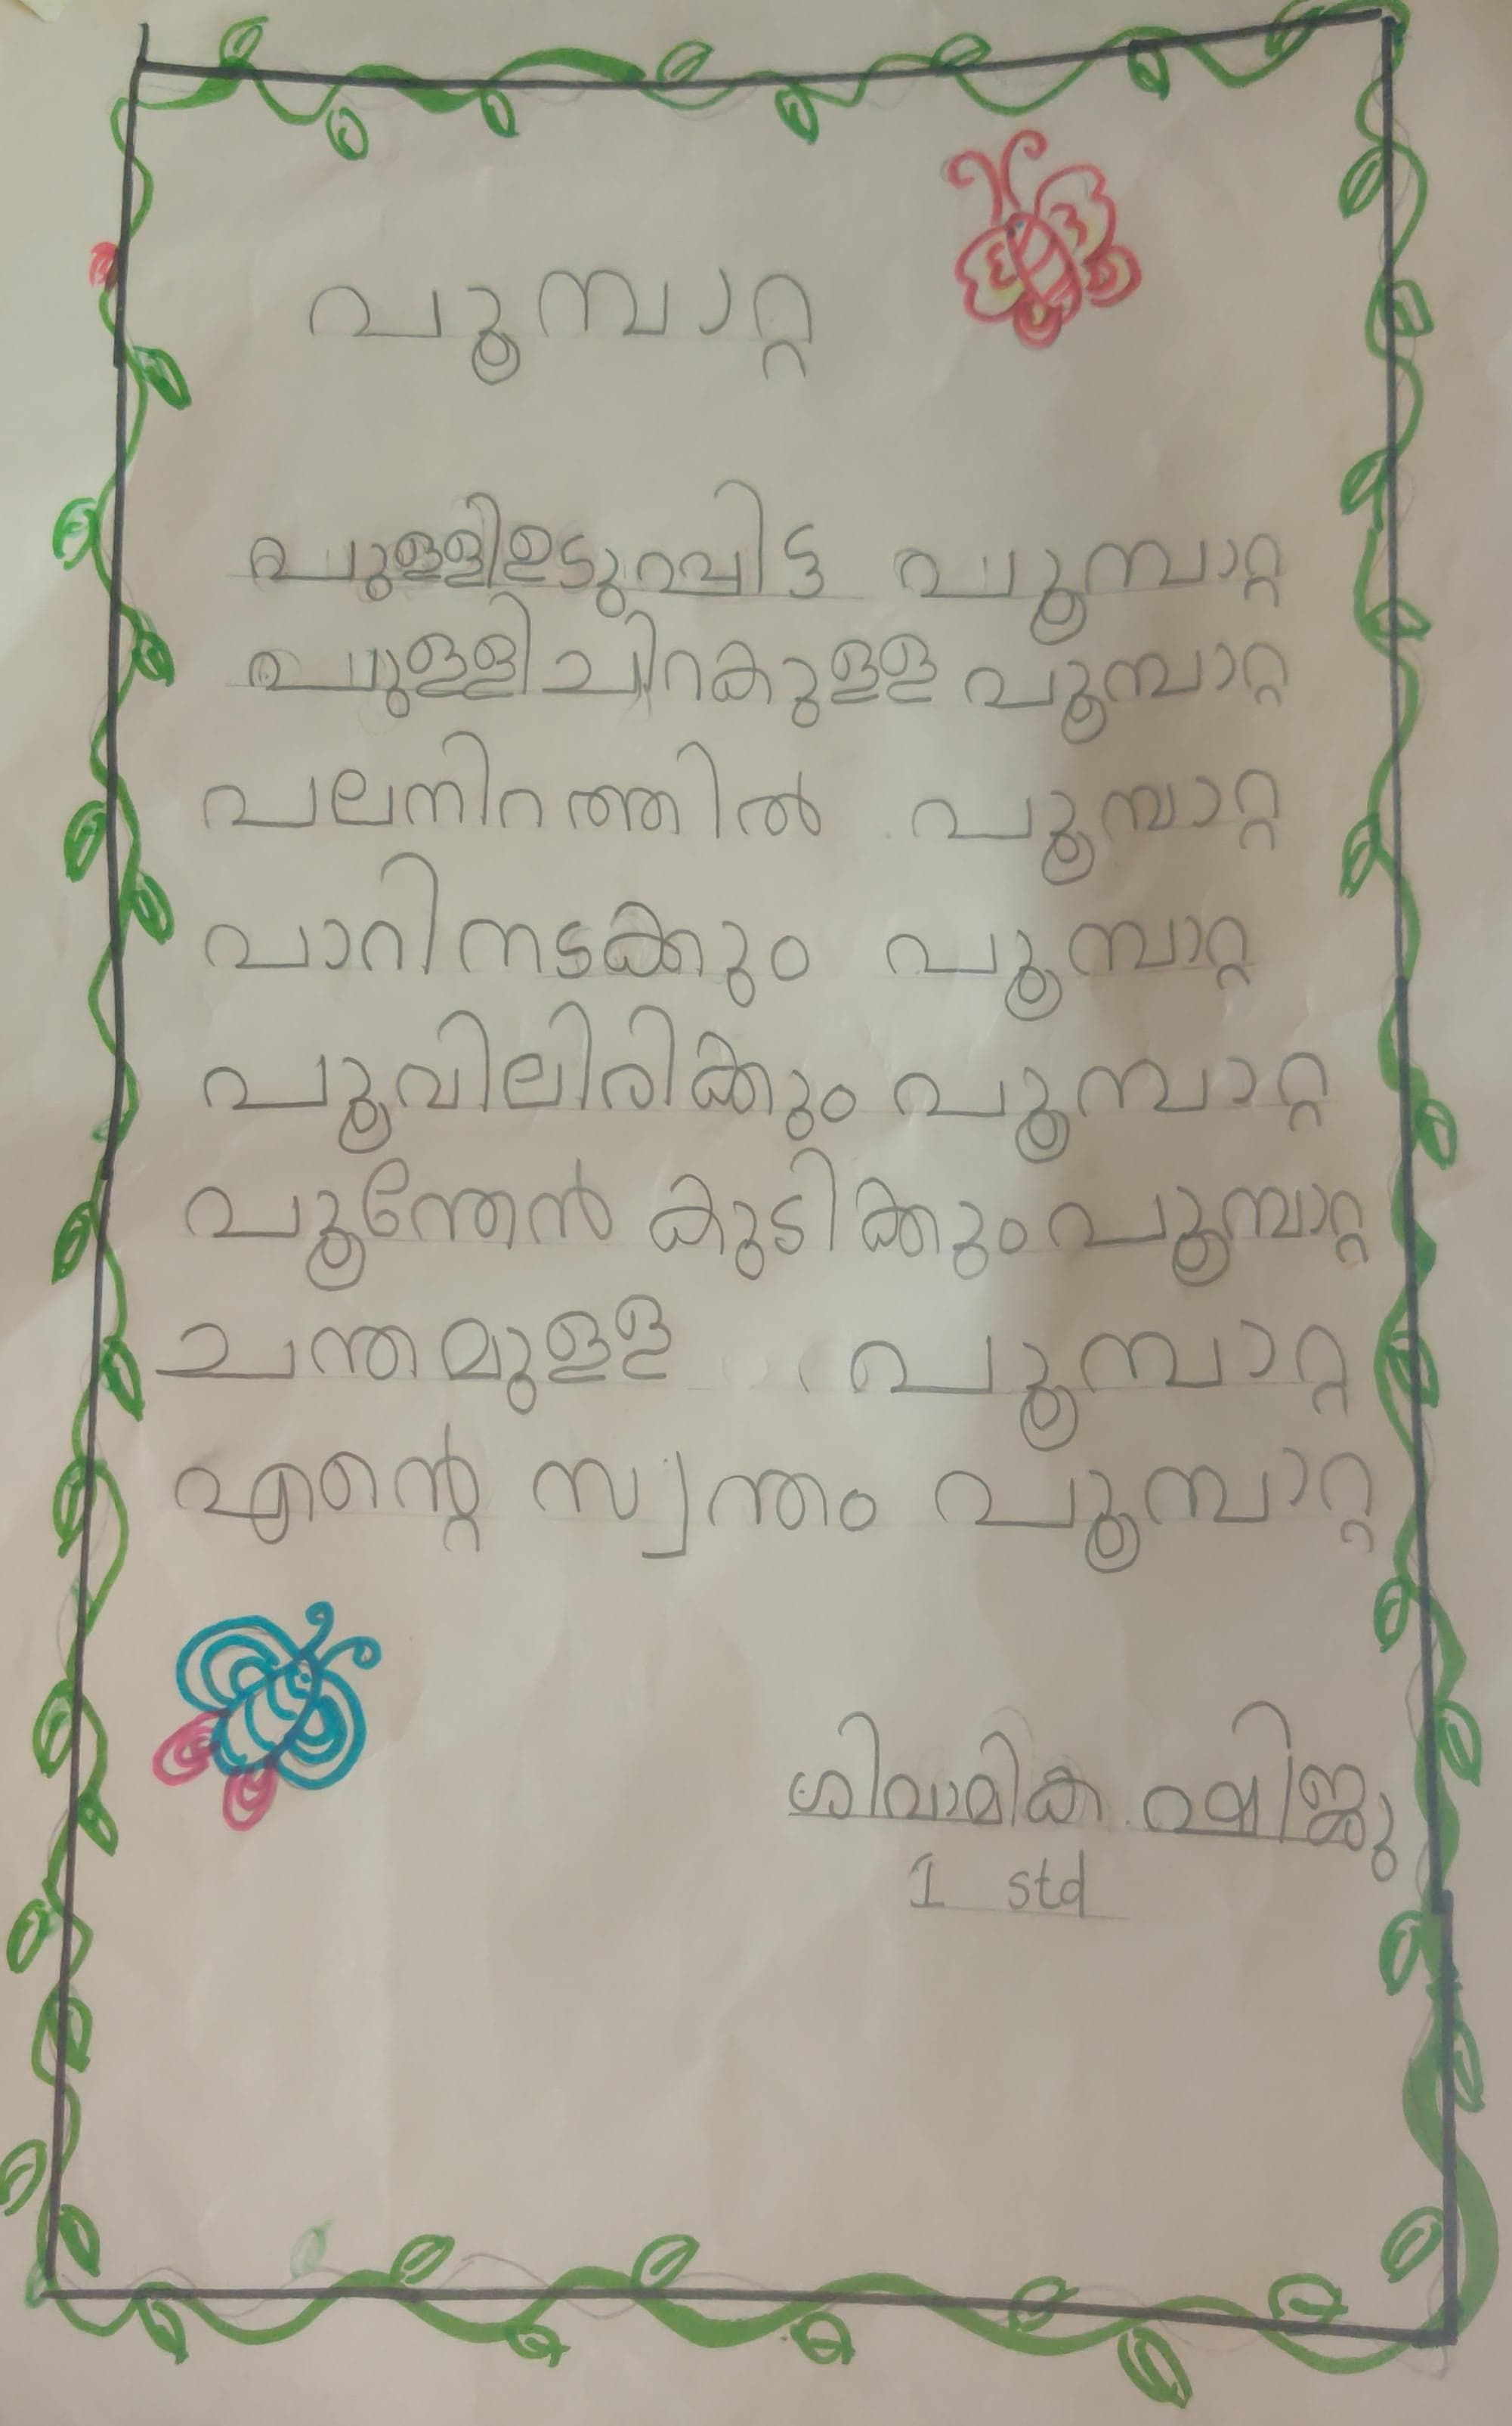 പൂമ്പാറ്റ
പുള്ളിഉടുപ്പിട്ട പൂമ്പാറ്റ
പുള്ളിചിറകുള്ള പൂമ്പാറ്റ
പലനിറത്തിൽ പൂമ്പാറ്റ
പാറിനടക്കും പൂമ്പാറ്റ
പൂവിലിരിക്കും പൂമ്പാറ്റ
പൂന്തേൻ കുടിക്കും പൂമ്പാറ്റ
ചന്തമുള്ള പൂമ്പാറ്റ
എന്റെ സ്വന്തം പൂമ്പാറ്റ
ശിവാമിക ഷിജു
1 std